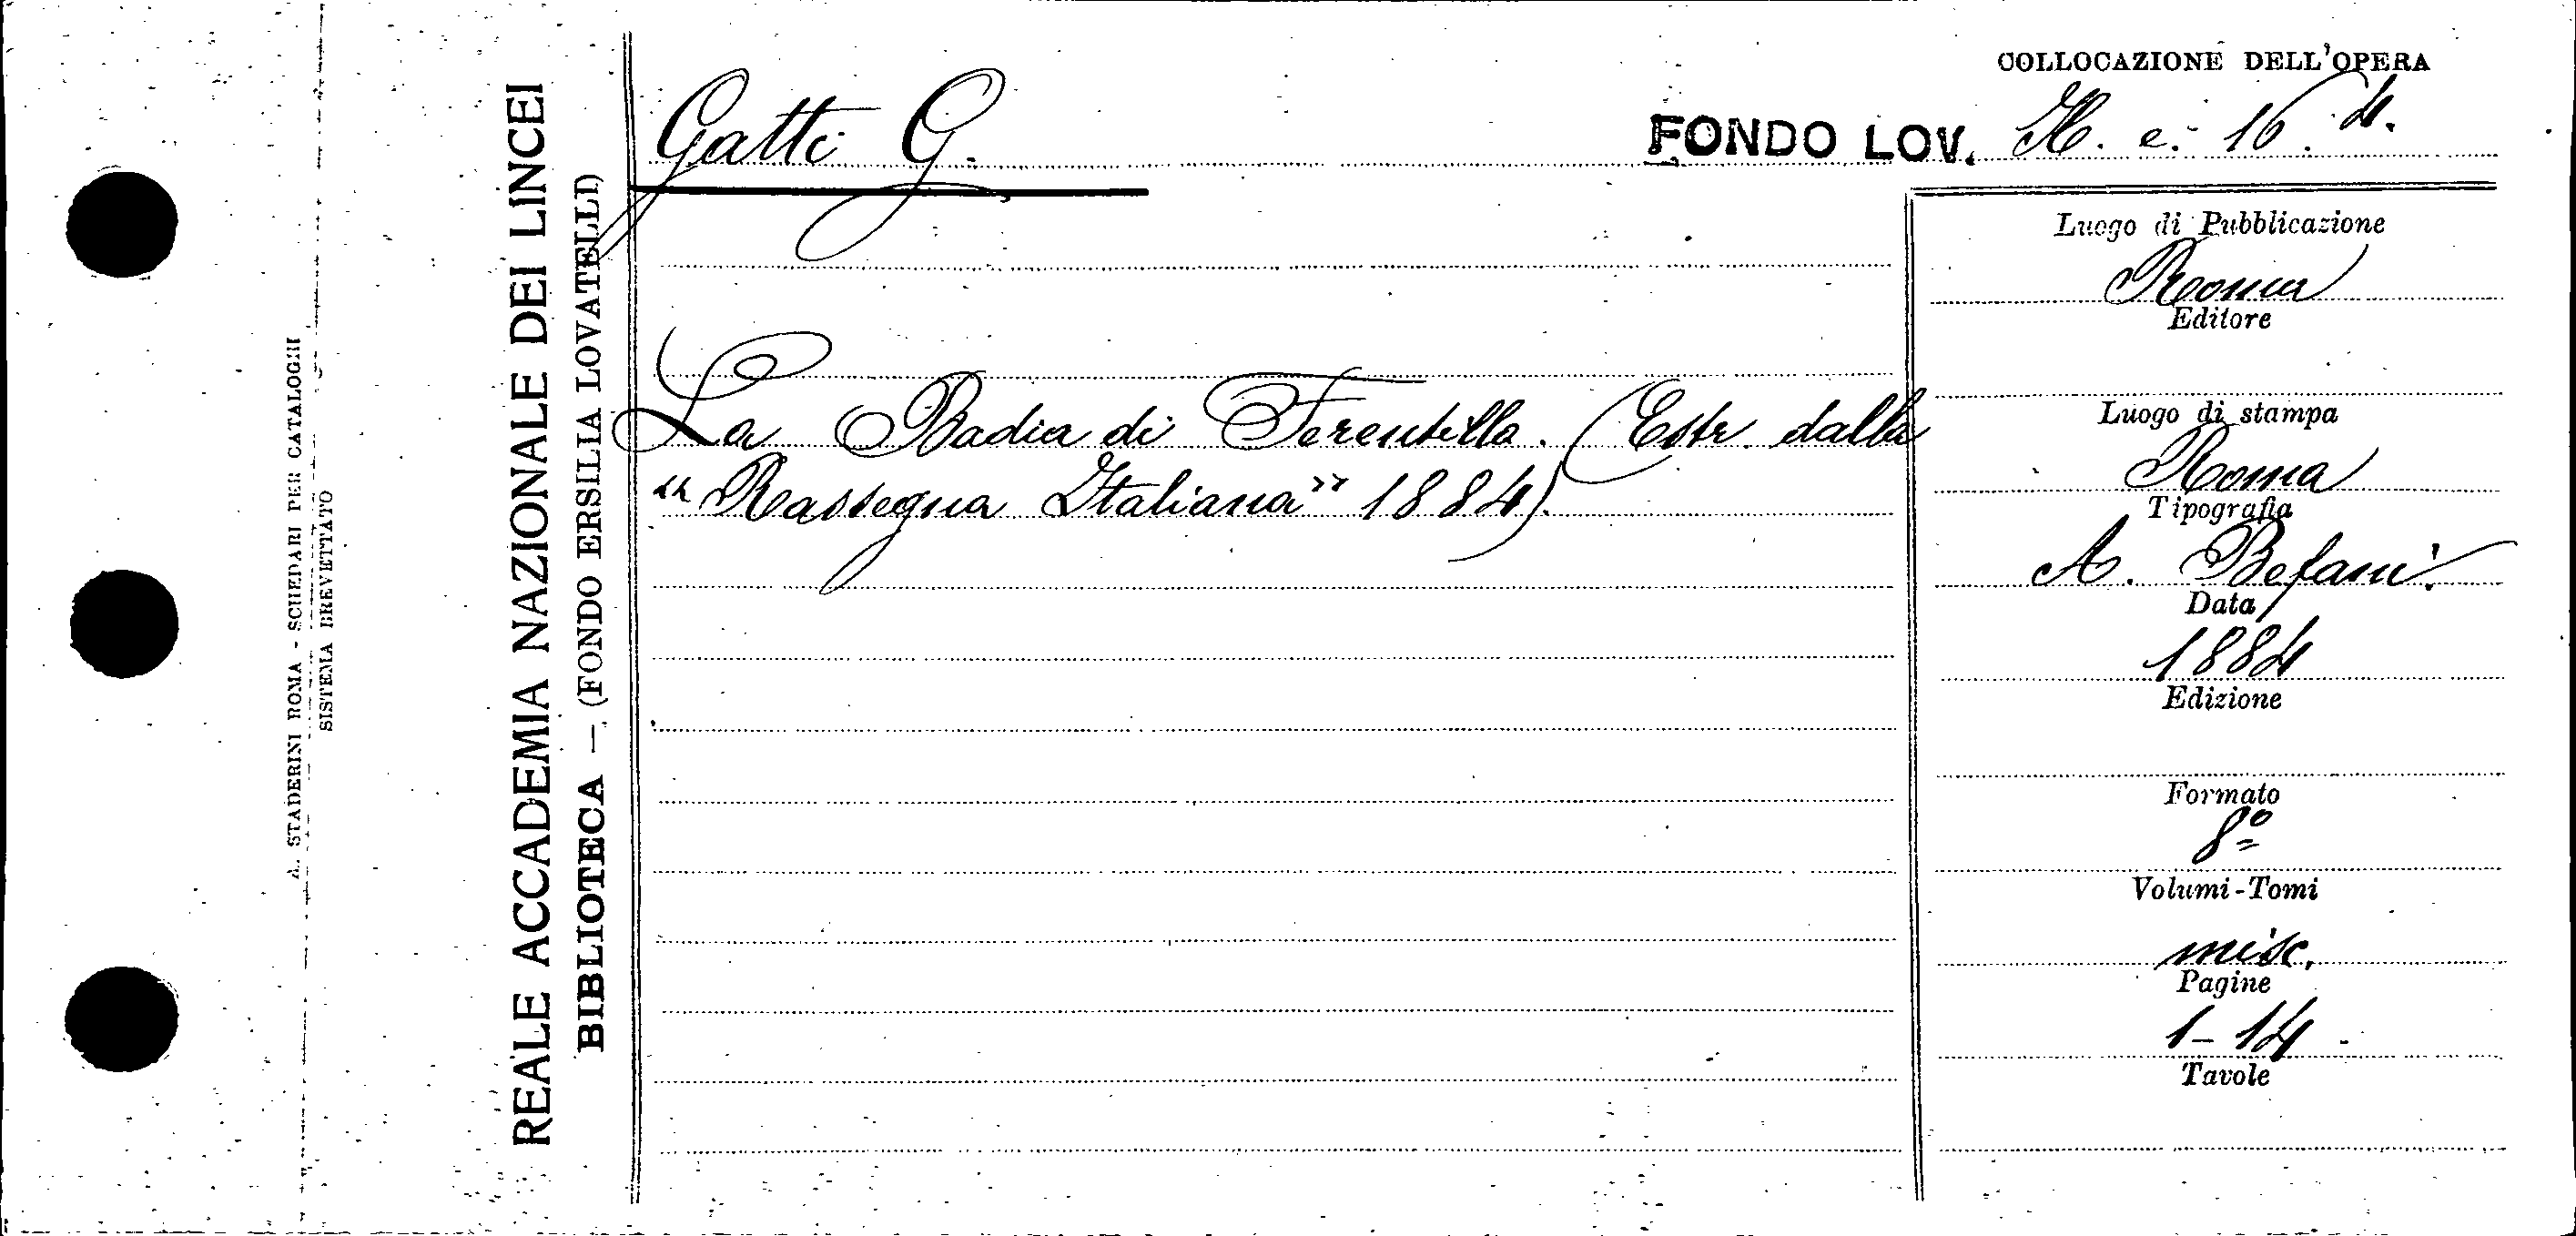 A. STADERINI ROMA - SCHEDARI PER CATALOGHI
SISTEMA BREVETTATO
REALE ACCADEMIA NAZIONALE DEI LINCEI
BIBLIOTECA — (FONDO ERSILIA LOVATELLI)
Gatti G.
COLLOCAZIONE DELL'OPERA
FONDO LOV. H. e. 16. 4.
La Badia di Ferentillo. (Estr. dalla
“Rassegna Italiana” 1884).
Luogo di Pubblicazione
Roma
Editore
Luogo di stampa
Roma
Tipografia
A. Befani
Data
1884
Edizione
Formato
8º
Volumi-Tomi
misc.
Pagine
1-14
Tavole